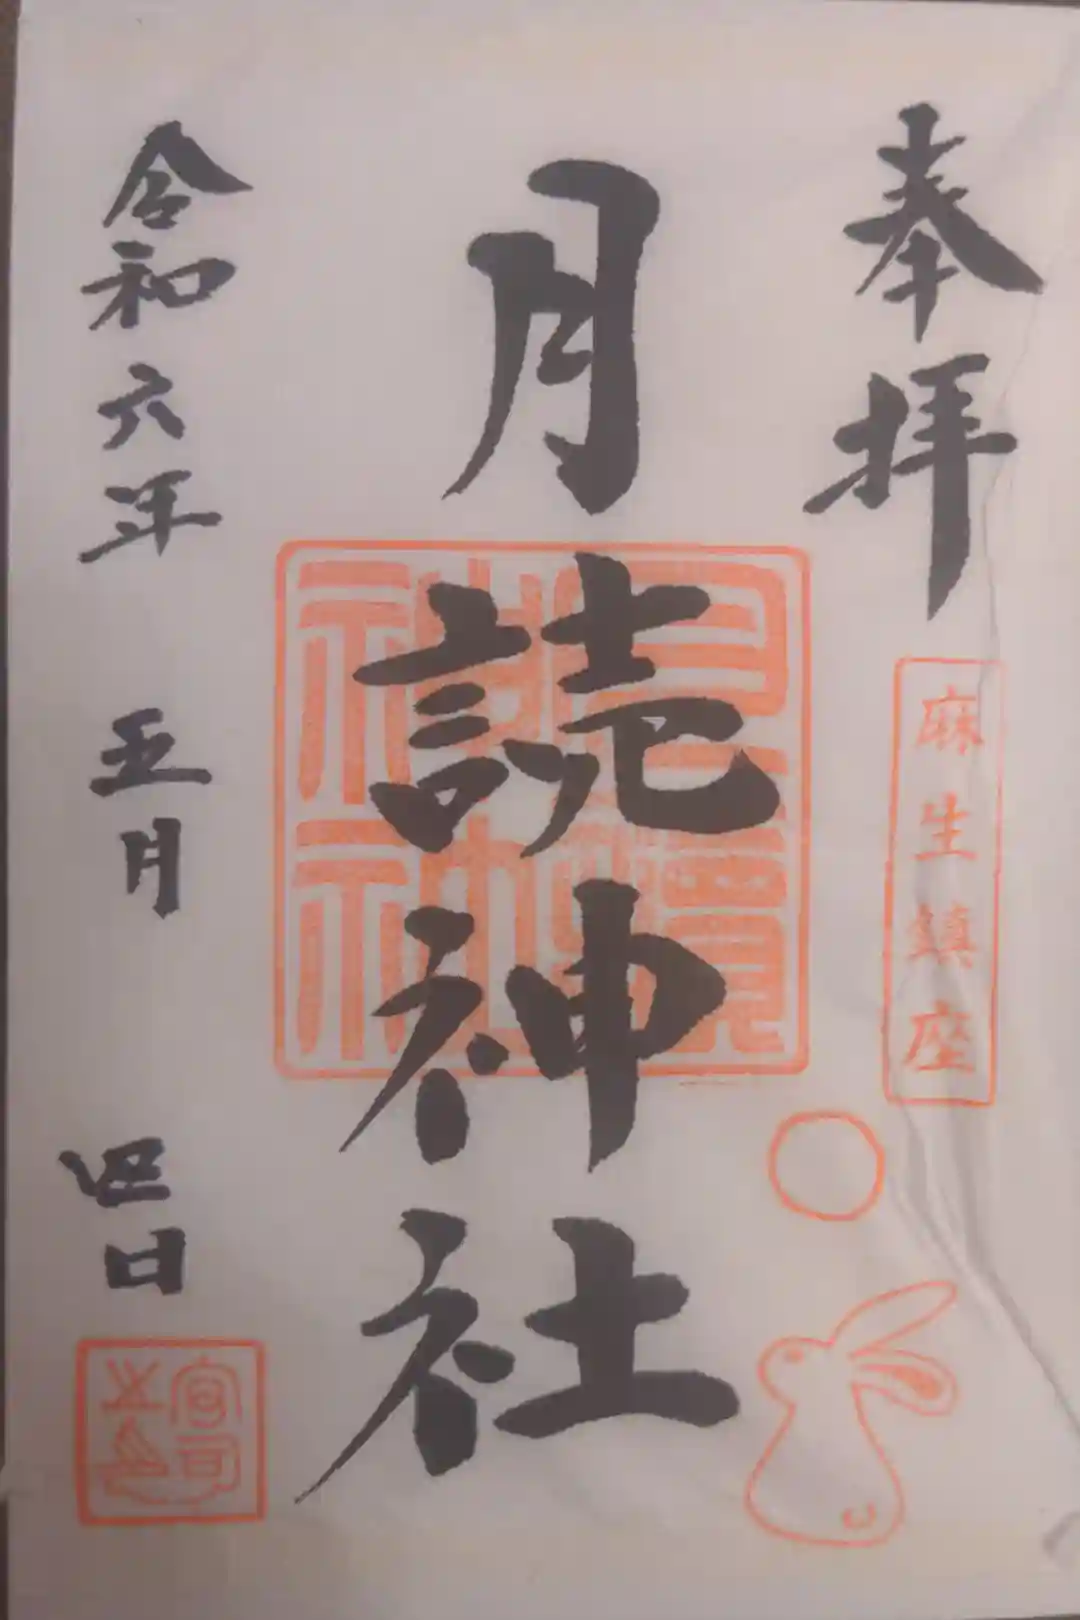 奉拝
麻生鎮座
月読神社
月讀神社
令和六年 五月 四日
宮司之印